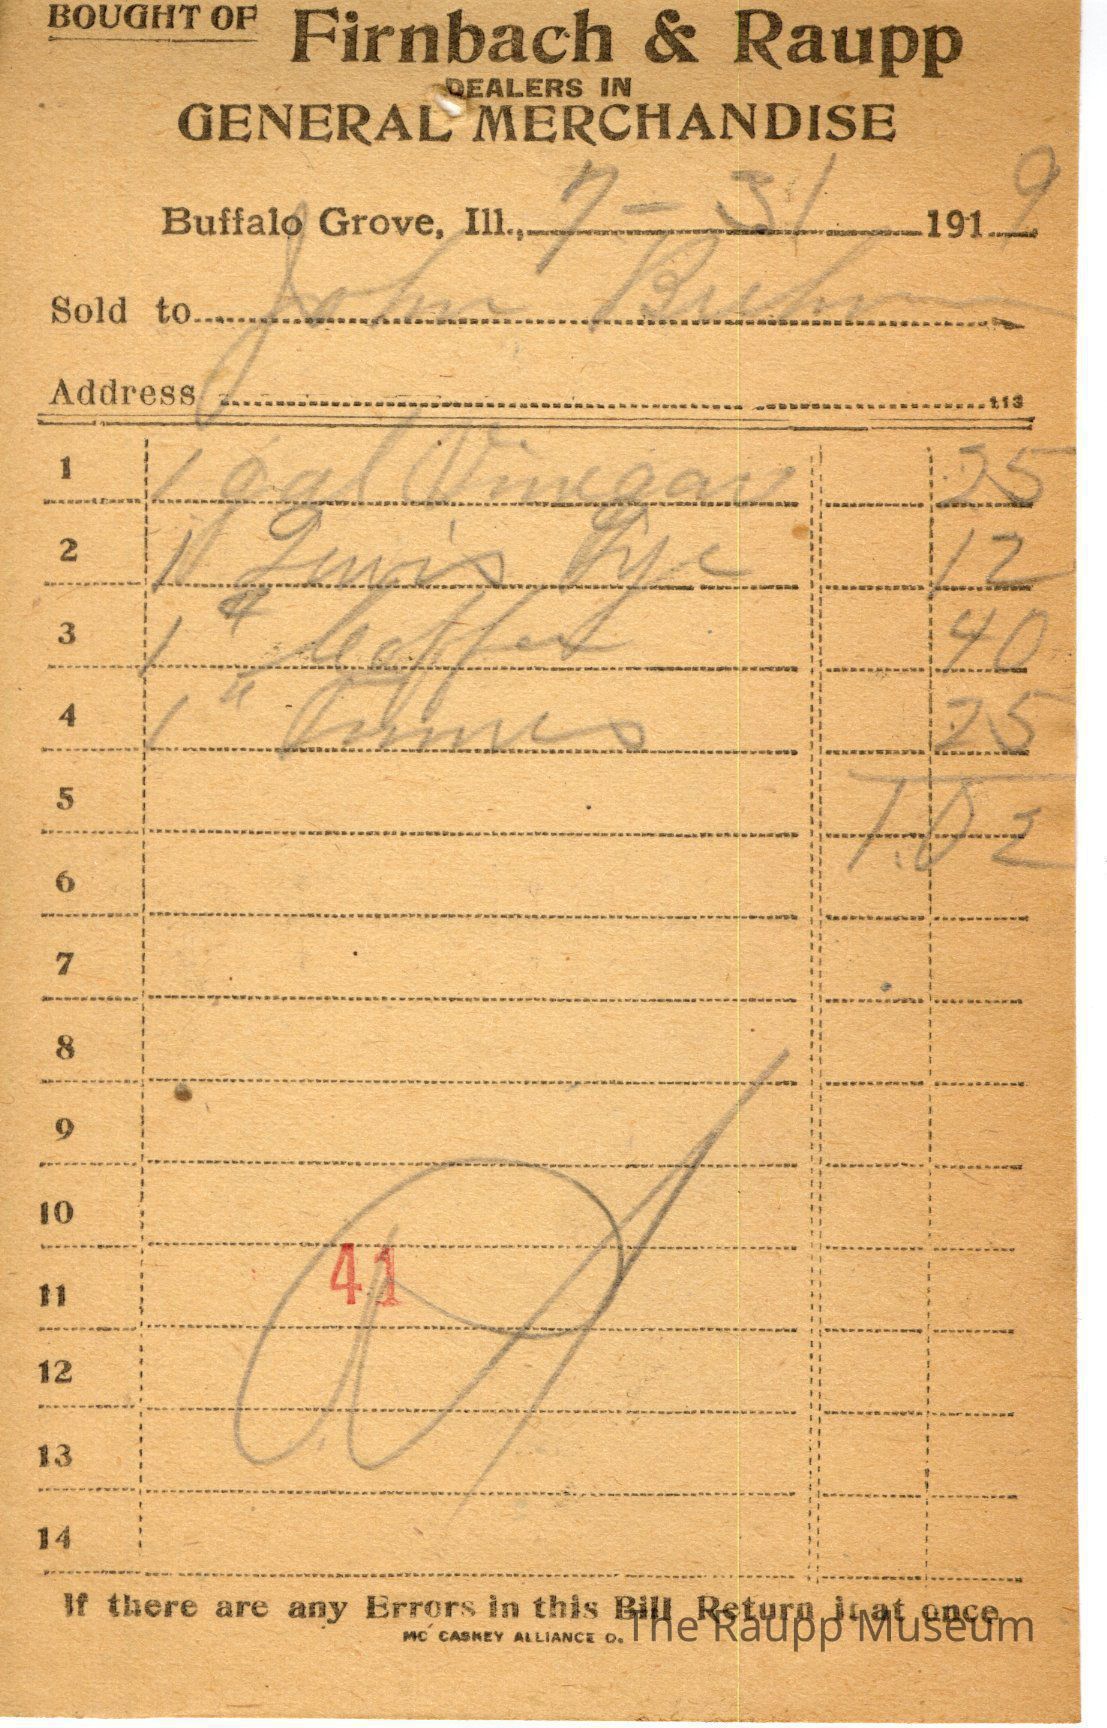 BOUGHT OF Firnbach & Raupp
DEALERS IN
GENERAL MERCHANDISE
Buffalo Grove, Ill., 7-31 1919
Sold to John
Address 113
1 1 gal Vinegar 25
2 1 Lewis Lye 12
3 1 # Coffee 40
4 1 " 25
5 1.02
6
7
8
9
10
11 41
12
13
14
If there are any Errors in this Bill Return it at once
MC CASKEY ALLIANCE O.
The Raupp Museum